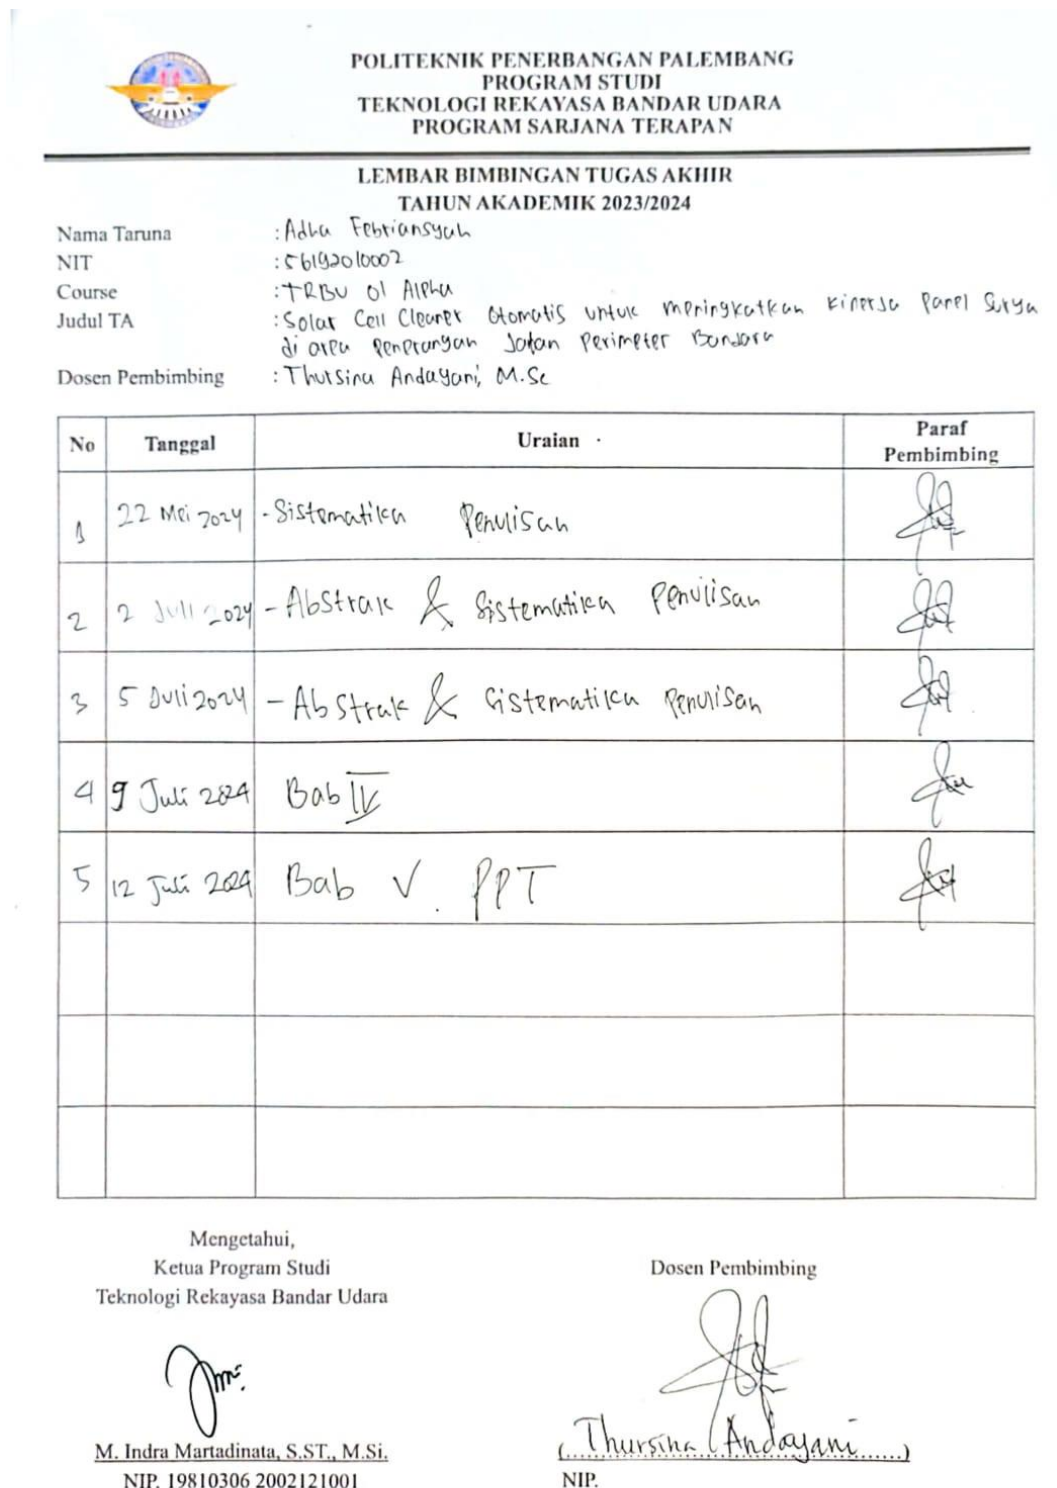 POLITEKNIK PENERBANGAN PALEMBANG
PROGRAM STUDI
TEKNOLOGI REKAYASA BANDAR UDARA
PROGRAM SARJANA TERAPAN
LEMBAR BIMBINGAN TUGAS AKHIR
TAHUN AKADEMIK 2023/2024
Nama Taruna : Adha Febriansyah
NIT : 56192010002
Course : TRBU 01 Alpha
Judul TA : Solar Cell Cleaner Otomatis untuk meningkatkan Kinerja Panel Surya
di area Penerangan Jalan Perimeter Bandara
Dosen Pembimbing : Thursina Andayani, M.Sc
No Tanggal Uraian Paraf Pembimbing
1 22 Mei 2024 - Sistematika Penulisan
2 2 Juli 2024 - Abstrak & Sistematika Penulisan
3 5 Juli 2024 - Abstrak & Sistematika Penulisan
4 9 Juli 2024 Bab IV
5 12 Juli 2024 Bab V. PPT
Mengetahui,
Ketua Program Studi
Teknologi Rekayasa Bandar Udara
Dosen Pembimbing
M. Indra Martadinata, S.ST., M.Si.
NIP. 19810306 2002121001
(Thursina Andayani)
NIP.